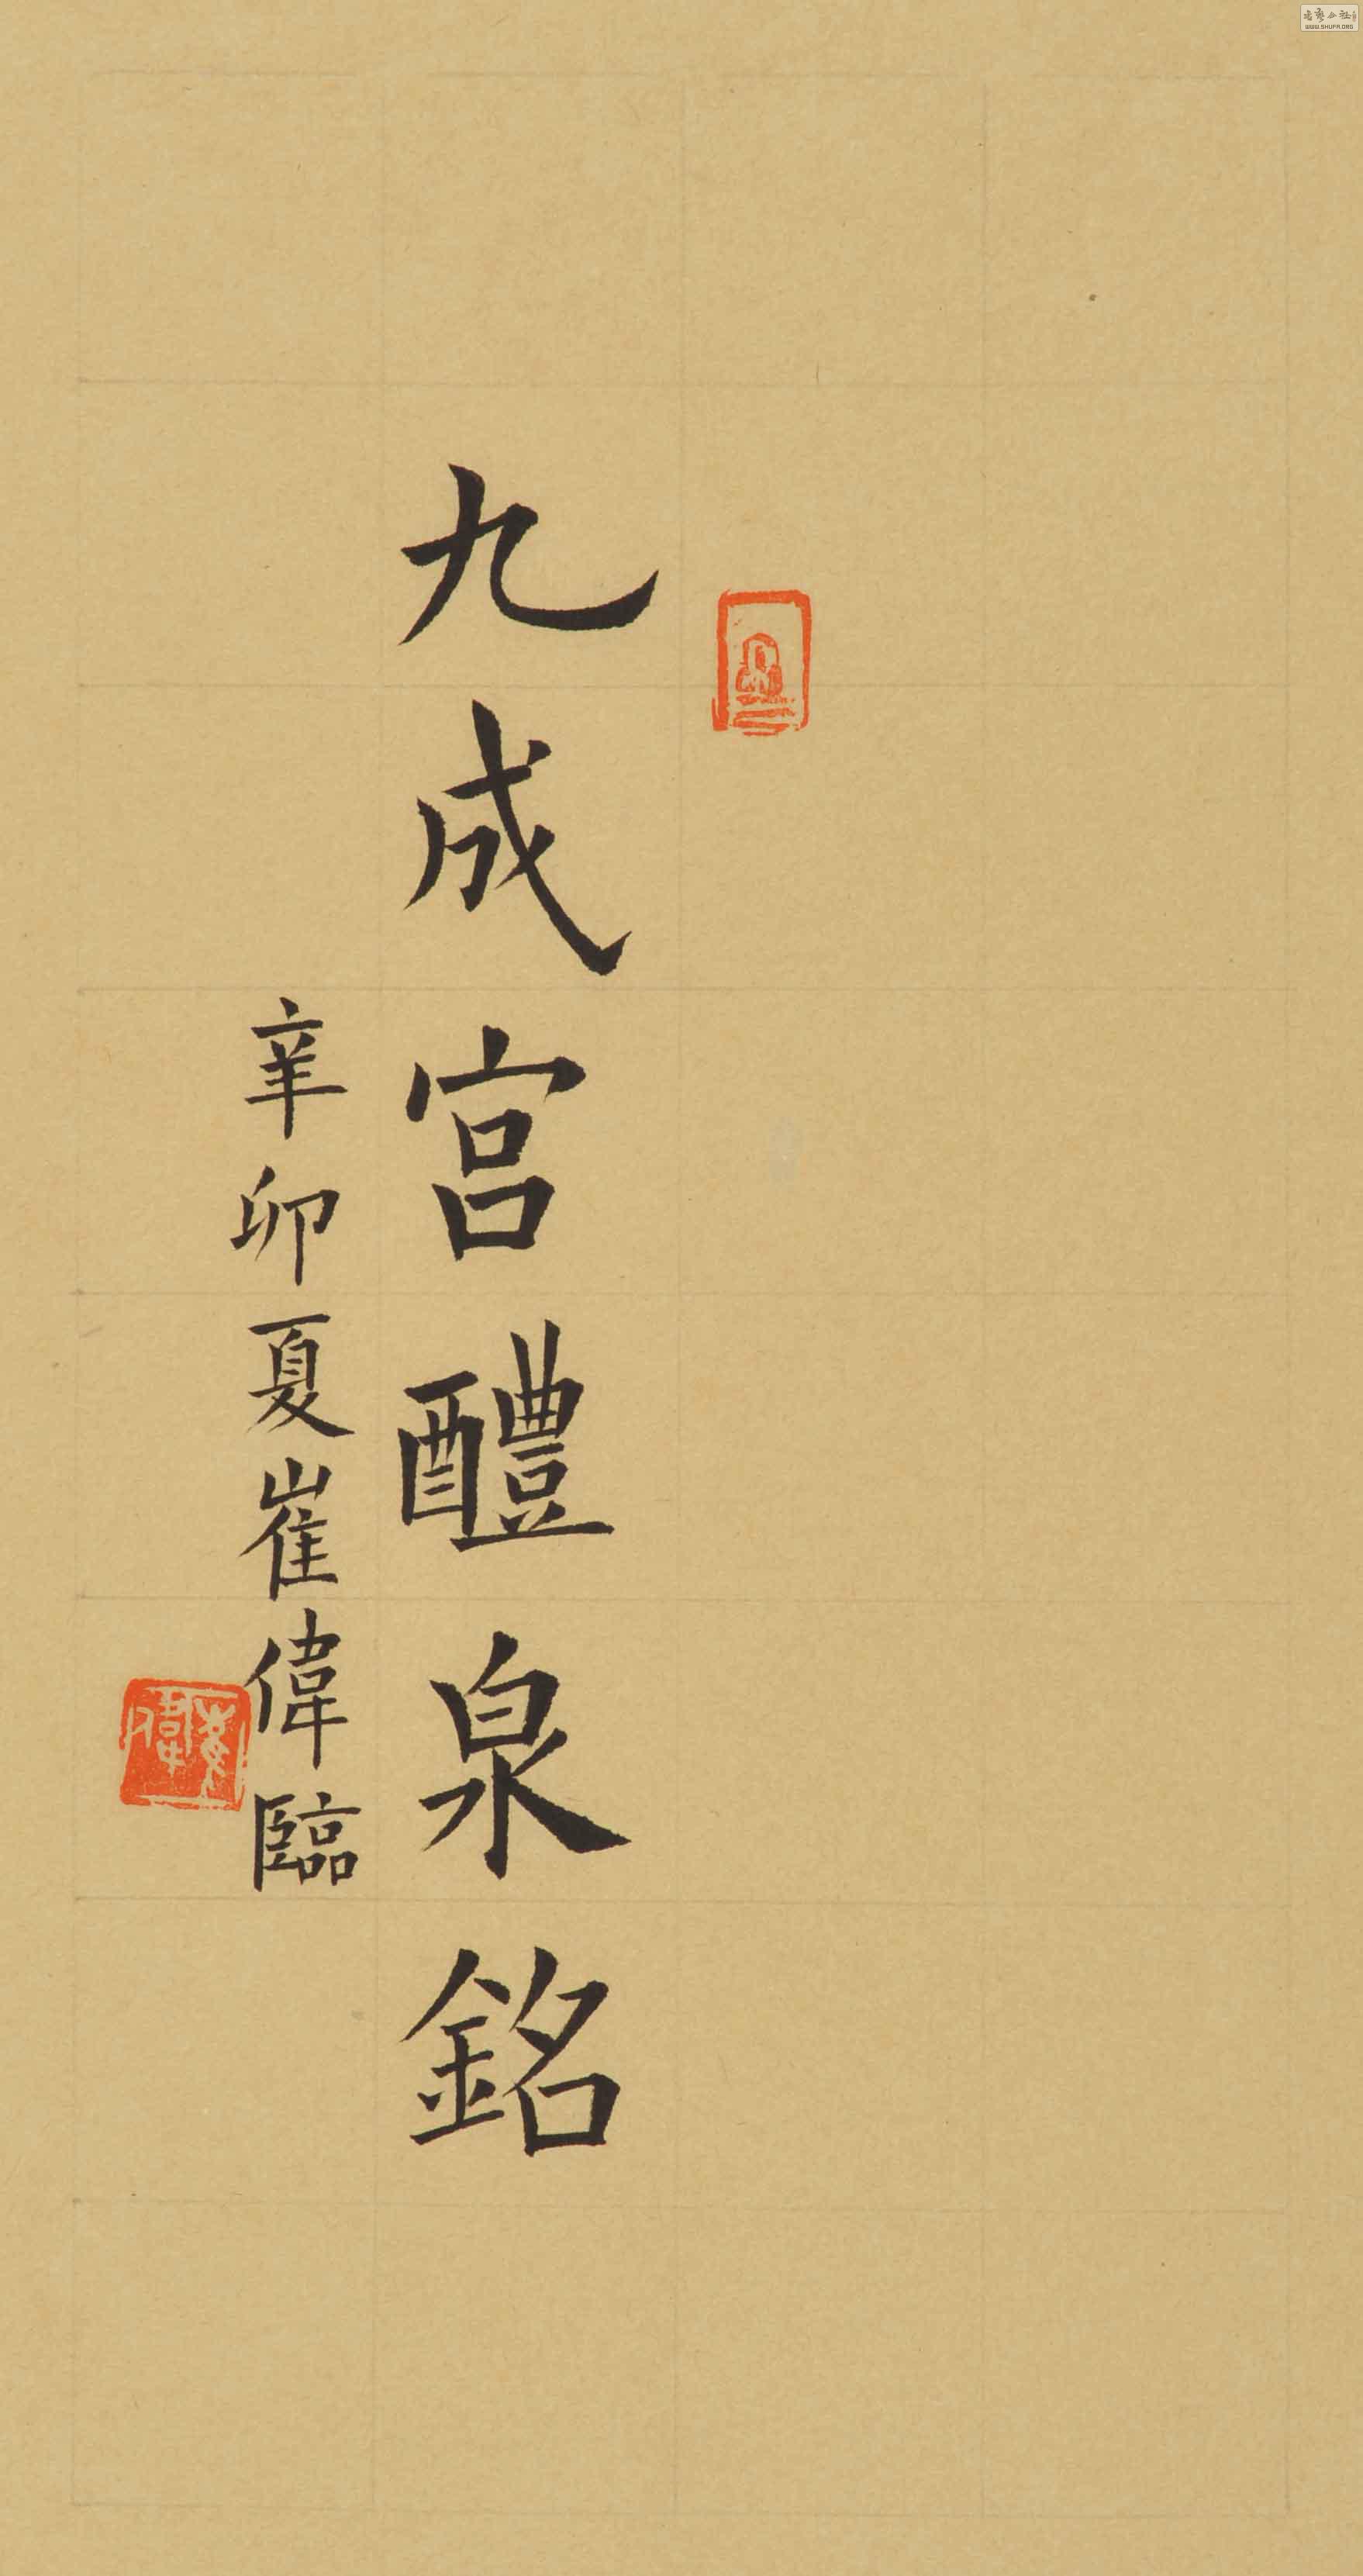 九成宫醴泉銘
辛卯夏崔偉臨
崔偉
WWW.SHUFA.ORG